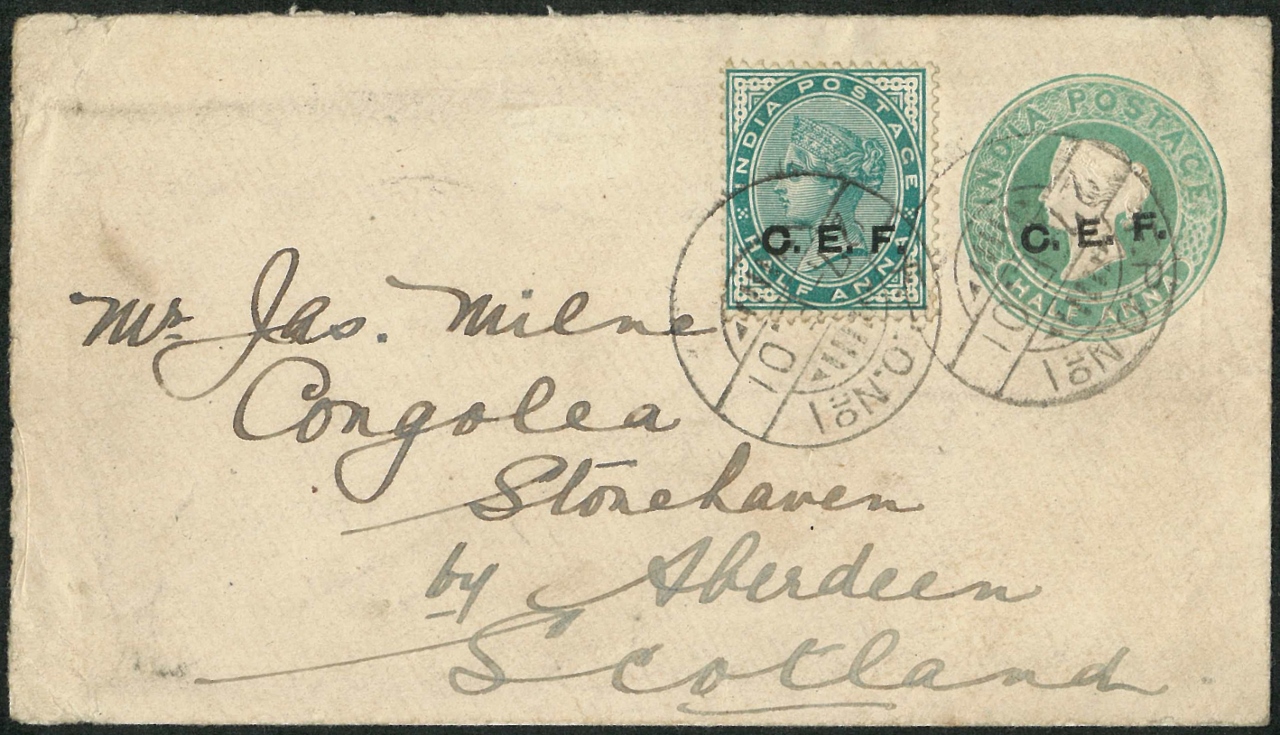 INDIA POSTAGE
C. E. F.
HALF ANNA
INDIA POSTAGE
C. E. F.
HALF ANNA
10
O. No 1
10
P. O. No 1
Mr Jas. Milne
Congolea
Stonehaven
by Aberdeen
Scotland